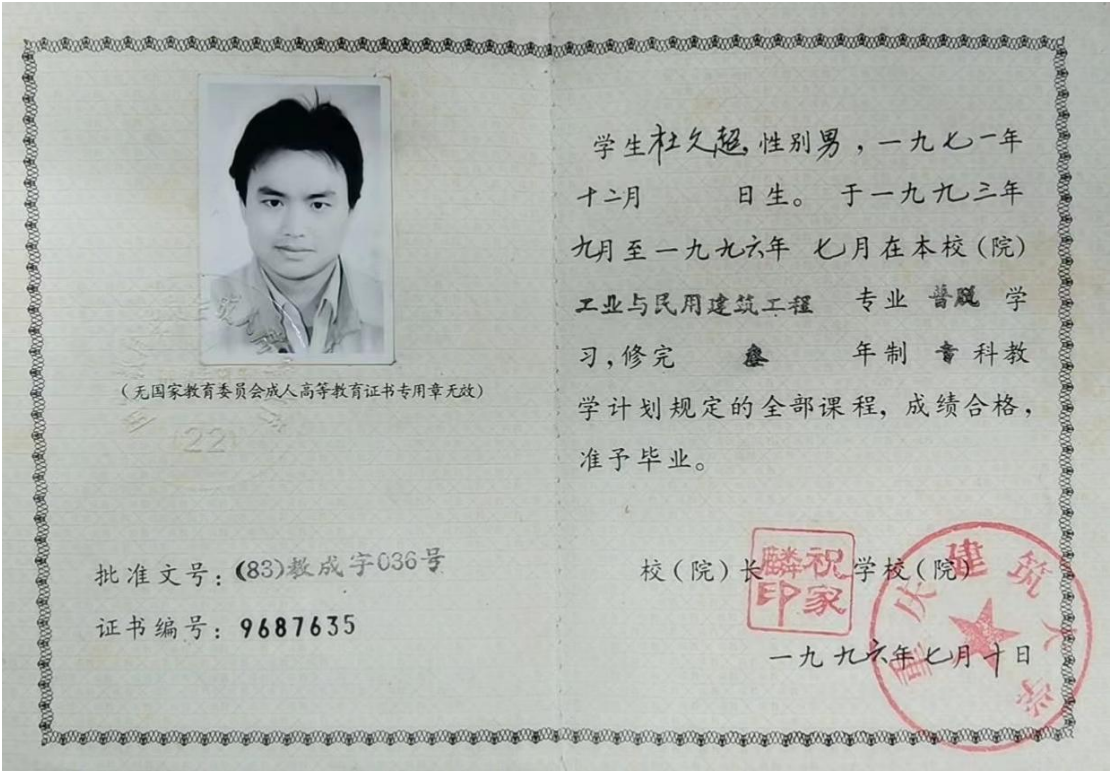 (无国家教育委员会成人高等教育证书专用章无效)
(22)
批准文号:(83)教成字036号
证书编号:9687635
学生杜久超,性别男,一九七一年
十二月 日生。于一九九三年
九月至一九九六年 七月在本校(院)
工业与民用建筑工程 专业 学
习,修完 叁 年制 专科教
学计划规定的全部课程,成绩合格,
准予毕业。
校(院)长 学校(院)
祝家麟印
重庆建筑大学
一九九六年七月十日